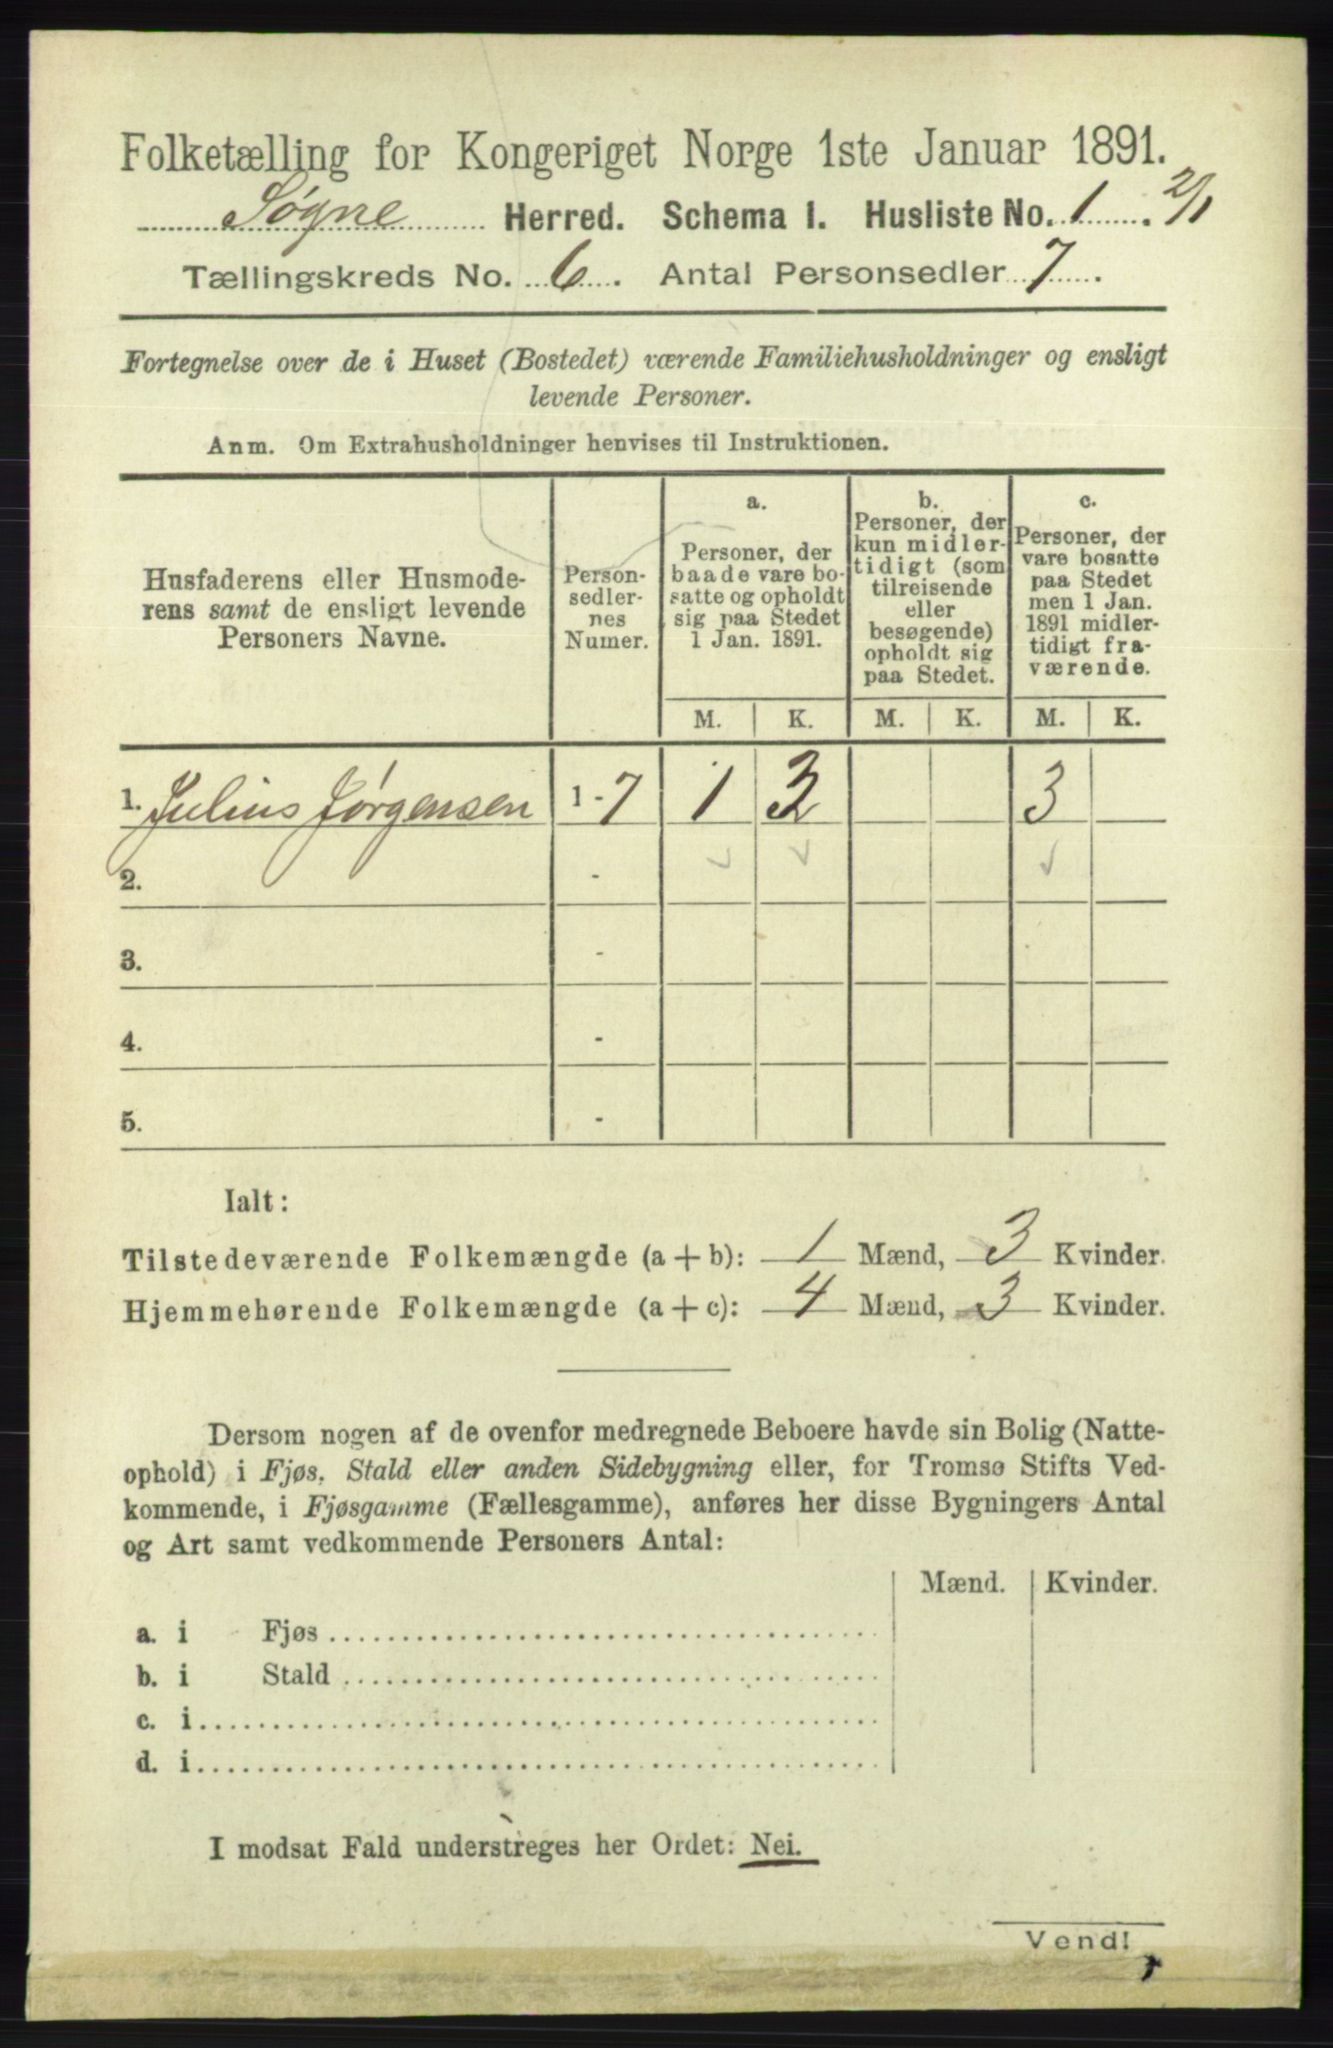 Folketælling for Kongeriget Norge 1ste Januar 1891.
Søgne Herred. Schema I. Husliste No. 1. 2/1
Tællingskreds No. 6. Antal Personsedler 7.
Fortegnelse over de i Huset (Bostedet) værende Familiehusholdninger og ensligt
levende Personer.
Anm. Om Extrahusholdninger henvises til Instruktionen.
Husfaderens eller Husmode-
rens samt de ensligt levende
Personers Navne.
Person-
sedler-
nes
Numer.
a.
Personer, der
baade vare bo-
satte og opholdt
sig paa Stedet
1 Jan. 1891.
b.
Personer, der
kun midler-
tidigt (som
tilreisende
eller
besøgende)
opholdt sig
paa Stedet.
c.
Personer, der
vare bosatte
paa Stedet
men 1 Jan.
1891 midler-
tidigt fra-
værende.
M. K. M. K. M. K.
1. Julius Jørgensen 1 - 7 1 3 3
2. -
3. -
4. -
5. -
Ialt:
Tilstedeværende Folkemængde (a + b): 1 Mænd, 3 Kvinder.
Hjemmehørende Folkemængde (a + c): 4 Mænd, 3 Kvinder.
Dersom nogen af de ovenfor medregnede Beboere havde sin Bolig (Natte-
ophold) i Fjøs, Stald eller anden Sidebygning eller, for Tromsø Stifts Ved-
kommende, i Fjøsgamme (Fællesgamme), anføres her disse Bygningers Antal
og Art samt vedkommende Personers Antal:
Mænd. Kvinder.
a. i Fjøs
b. i Stald
c. i
d. i
I modsat Fald understreges her Ordet: Nei.
Vend!